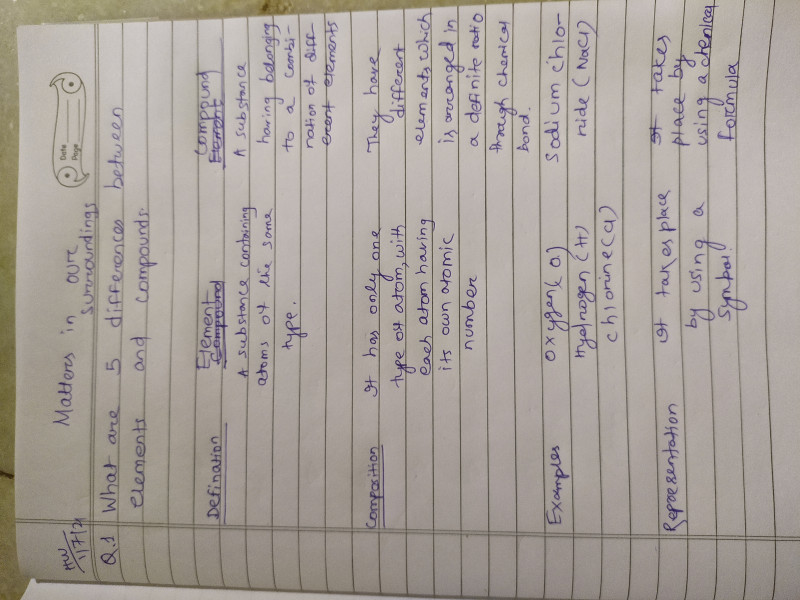 HW
1/7/21
Matters in our
surroundings
Date
Page
Q.1 What are 5 differences between
elements and compounds.
Element
Compound
Compound
Element
Defination
A substance containing
atoms of the same
type.
A substance
having belonging
to a combi-
nation of diff-
erent elements
Composition
It has only one
type of atom, with
each atom having
its own atomic
number
They have
different
elements which
is arranged in
a definite ratio
through chemical
bond.
Examples
Oxygen(O)
Hydrogen (H)
chlorine(Cl)
Sodium chlo-
ride (NaCl)
Representation
It takes place
by using a
symbol.
It takes
place by
using a chemical
formula